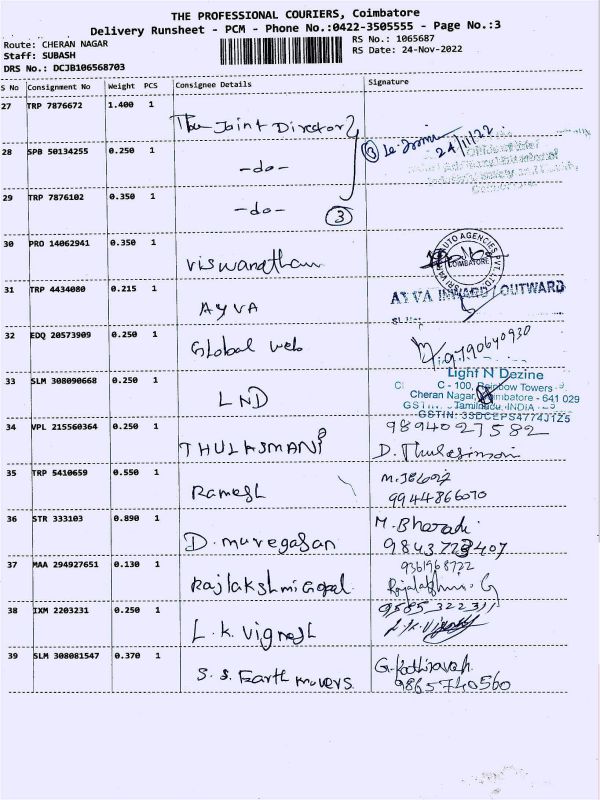 THE PROFESSIONAL COURIERS, Coimbatore
Delivery Runsheet - PCM - Phone No.:0422-3505555 - Page No.:3
Route: CHERAN NAGAR
Staff: SUBASH
DRS No.: DCJB106568703
RS No.: 1065687
RS Date: 24-Nov-2022
S No Consignment No Weight PCS Consignee Details Signature
27 TRP 7876672 1.400 1
The Joint Director
28 SPB 50134255 0.250 1
-do-
3
24/11/22
29 TRP 7876102 0.350 1
-do-
3
30 PRO 14062941 0.350 1
Viswanathan
AUTO AGENCIES PVT. LTD
COIMBATORE
31 TRP 4434080 0.215 1
AYVA
AYVA INWARD / OUTWARD
32 EDQ 20573909 0.250 1
Global web
9790640930
33 SLM 308090668 0.250 1
LND
Light N Dezine
C - 100, Rainbow Towers
Cheran Nagar, Coimbatore - 641 029
Tamilnadu, INDIA
GSTIN: 33DCEPS4774J1Z5
34 VPL 215560364 0.250 1
THULASMANI
9894027582
D. Thulasimani
35 TRP 5410659 0.550 1
Ramesh
9944866070
36 STR 333103 0.890 1
D. murugasan
M. Bharadi
9843723407
37 MAA 294927651 0.130 1
Rajlakshmi Gopal
9361968722
Rajalakshmi. G
38 IXM 2203231 0.250 1
L.K. Vignesh
9585322311
39 SLM 308081547 0.370 1
S.S. Earth movers
9865740560